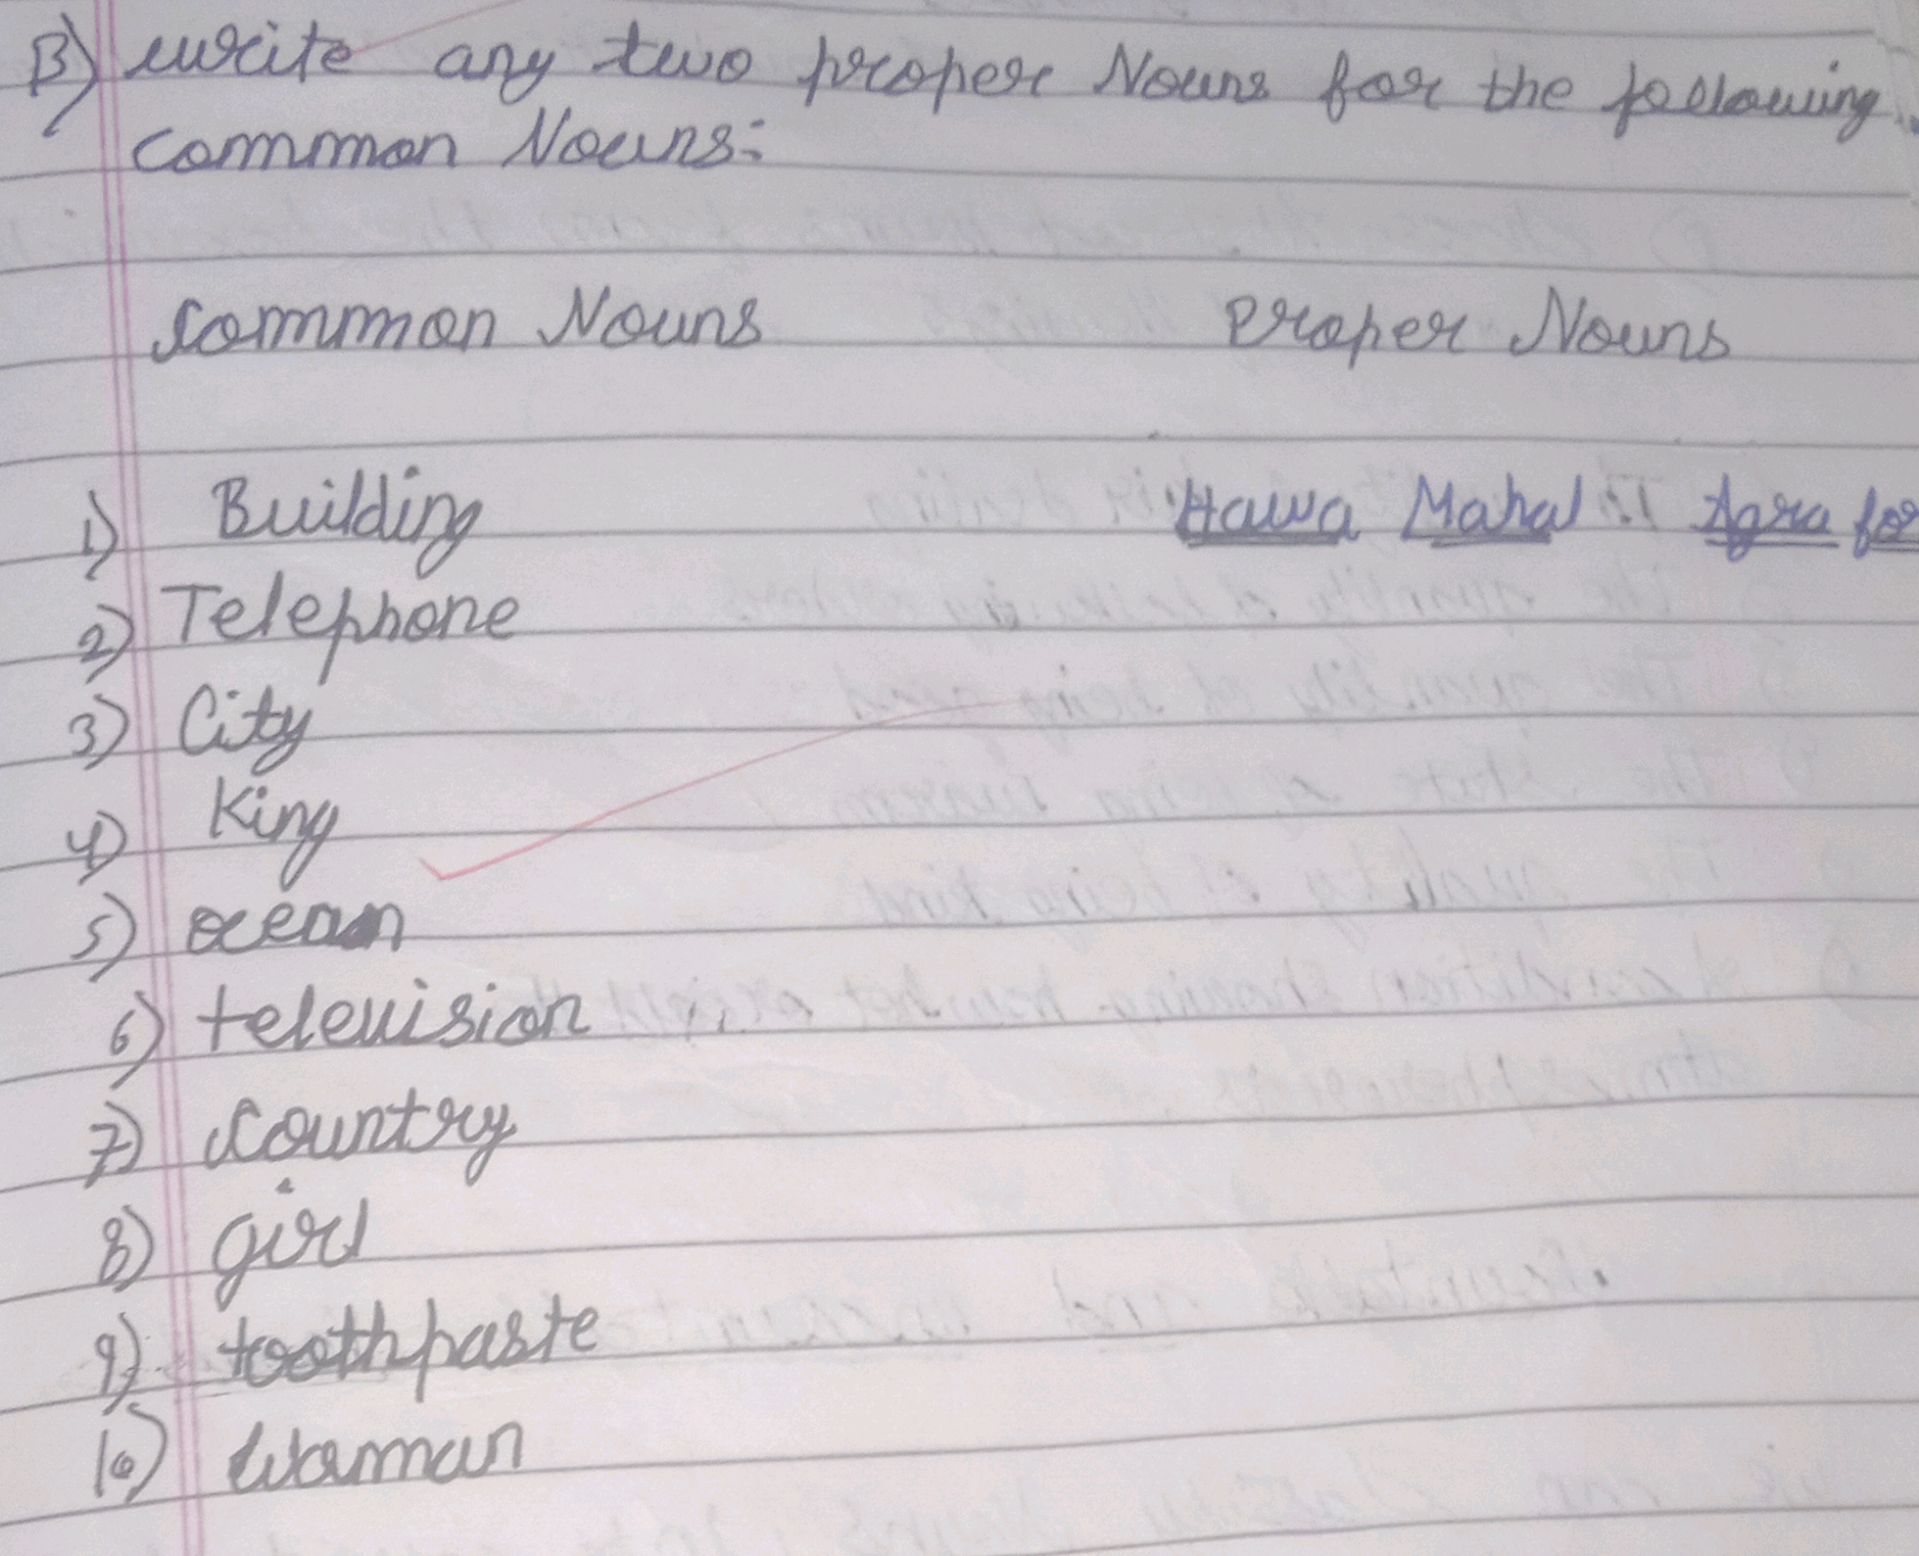 B) write any two proper Nouns for the following
common Nouns:
Common Nouns Proper Nouns
1) Building Hawa Mahal Agra for
2) Telephone
3) City
4) King
5) ocean
6) television
7) Country
8) girl
9) toothpaste
10) Woman